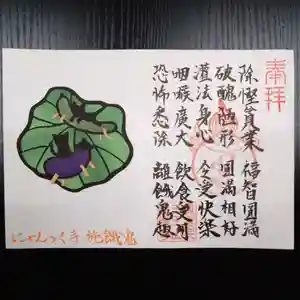 奉拝
除慳貪業 福智圓滿
破醜陋形 圓滿相好
灌法身心 令受快楽
咽喉廣大 飲食受用
恐怖悉除 離餓鬼趣
にゃんつく寺 施餓鬼